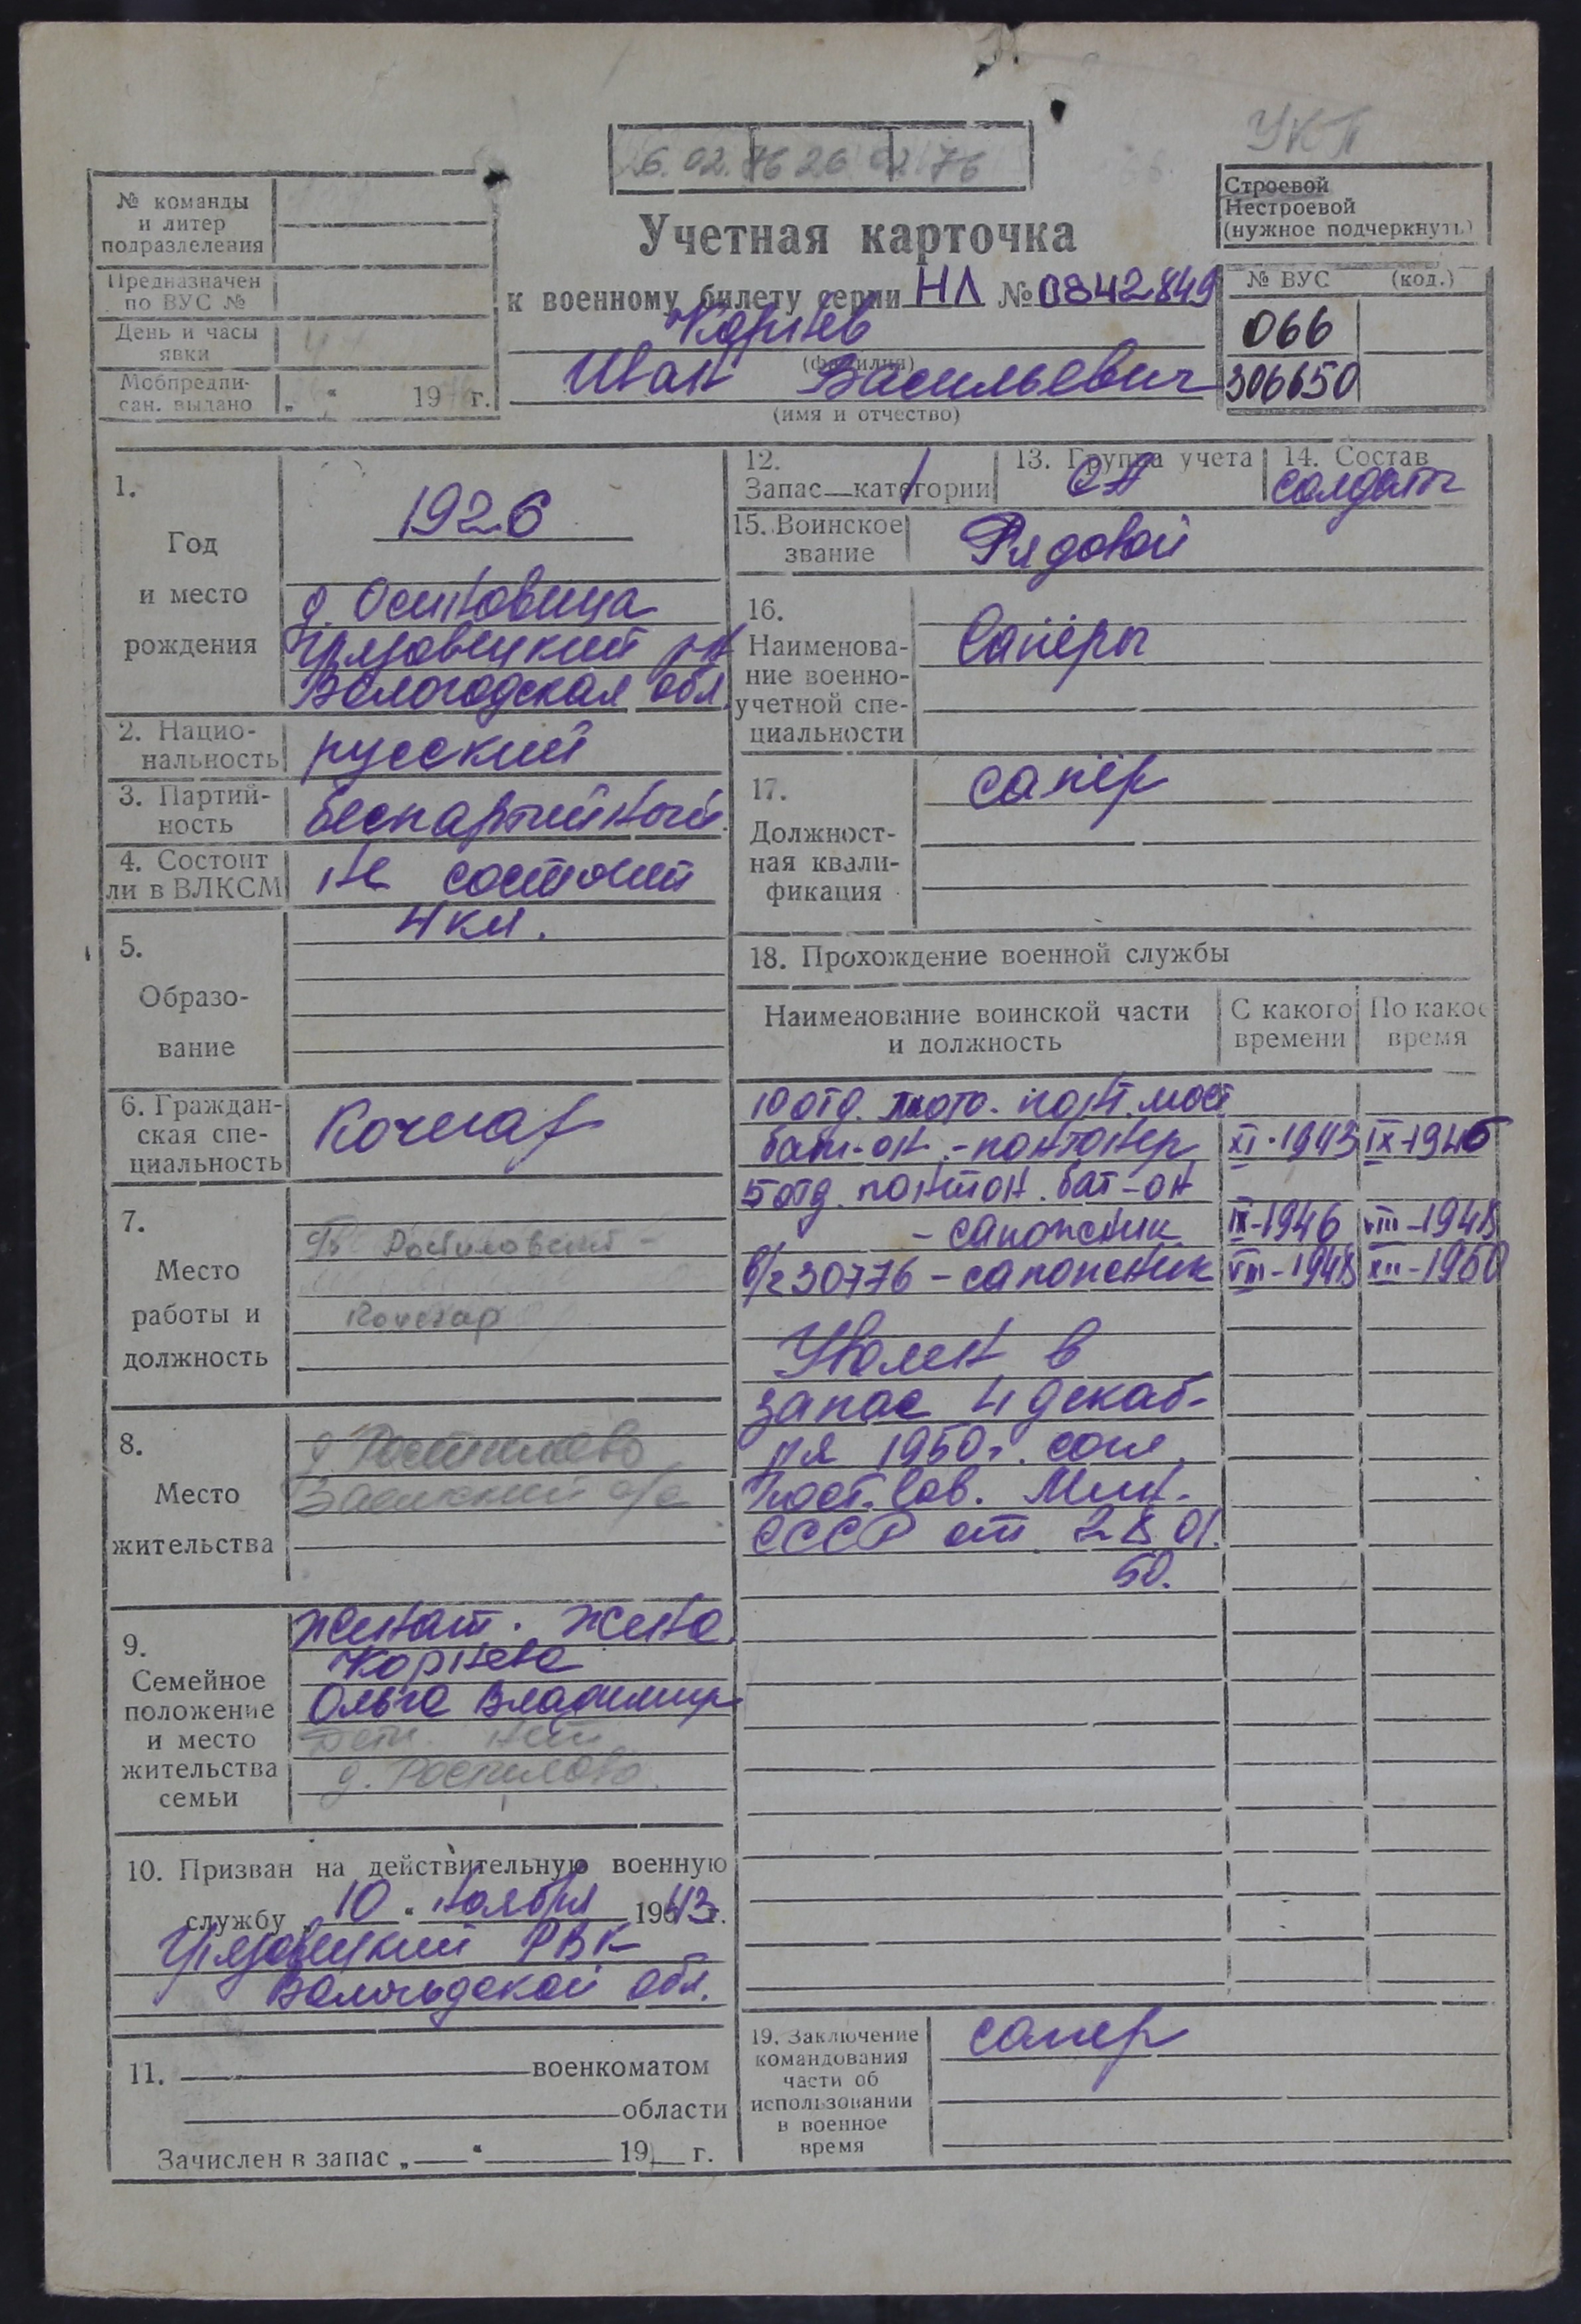 УКП
26.02.76 26 02 76
№ команды
и литер
подразделения
Предназначен
по ВУС №
День и часы
явки
Мобпредпи-
сан. выдано „ “ 19 г.
Учетная карточка
к военному билету серии НЛ № 0842849
Корнев
(фамилия)
Иван Васильевич
(имя и отчество)
Строевой
Нестроевой
(нужное подчеркнуть)
№ ВУС (код.)
066
306650
1.
Год
и место
рождения
1926
д. Осиновица
Грязовецкий р-н
Вологодская обл.
2. Нацио-
нальность
русский
3. Партий-
ность
беспартийный.
4. Состоит
ли в ВЛКСМ
не состоит
5.
Образо-
вание
4 кл.
6. Граждан-
ская спе-
циальность
Кочегар
7.
Место
работы и
должность
Кочегар
8.
Место
жительства
д. Ростилово
с/с
9.
Семейное
положение
и место
жительства
семьи
женат. жена
Корнева
Ольга Владимир
Дети. нет
д. Ростилово.
10. Призван на действительную военную
службу „ 10 “ ноября 1943 г.
Грязовецкий РВК
Вологодской обл.
11. военкоматом
области
Зачислен в запас „ “ 19 г.
12.
Запас—категории 1
13. Группа учета
СА
14. Состав
солдаты
15. Воинское
звание
Рядовой
16.
Наименова-
ние военно-
учетной спе-
циальности
Сапёры
17.
Должност-
ная квали-
фикация
сапёр
18. Прохождение военной службы
Наименование воинской части
и должность
С какого
времени
По какое
время
10 отд. мото. понт. мост
бат-он - понтонер XI-1943 IX-1946
5 отд. понтон. бат-он
- сапожник IX-1946 VIII-1948
в/ч 30776 - сапожник VIII-1948 XII-1950
Уволен в
запас 4 декаб-
ря 1950г. согл.
Пост. Сов. Мин.
СССР от 28.01.
50.
19. Заключение
командования
части об
использовании
в военное
время
сапер